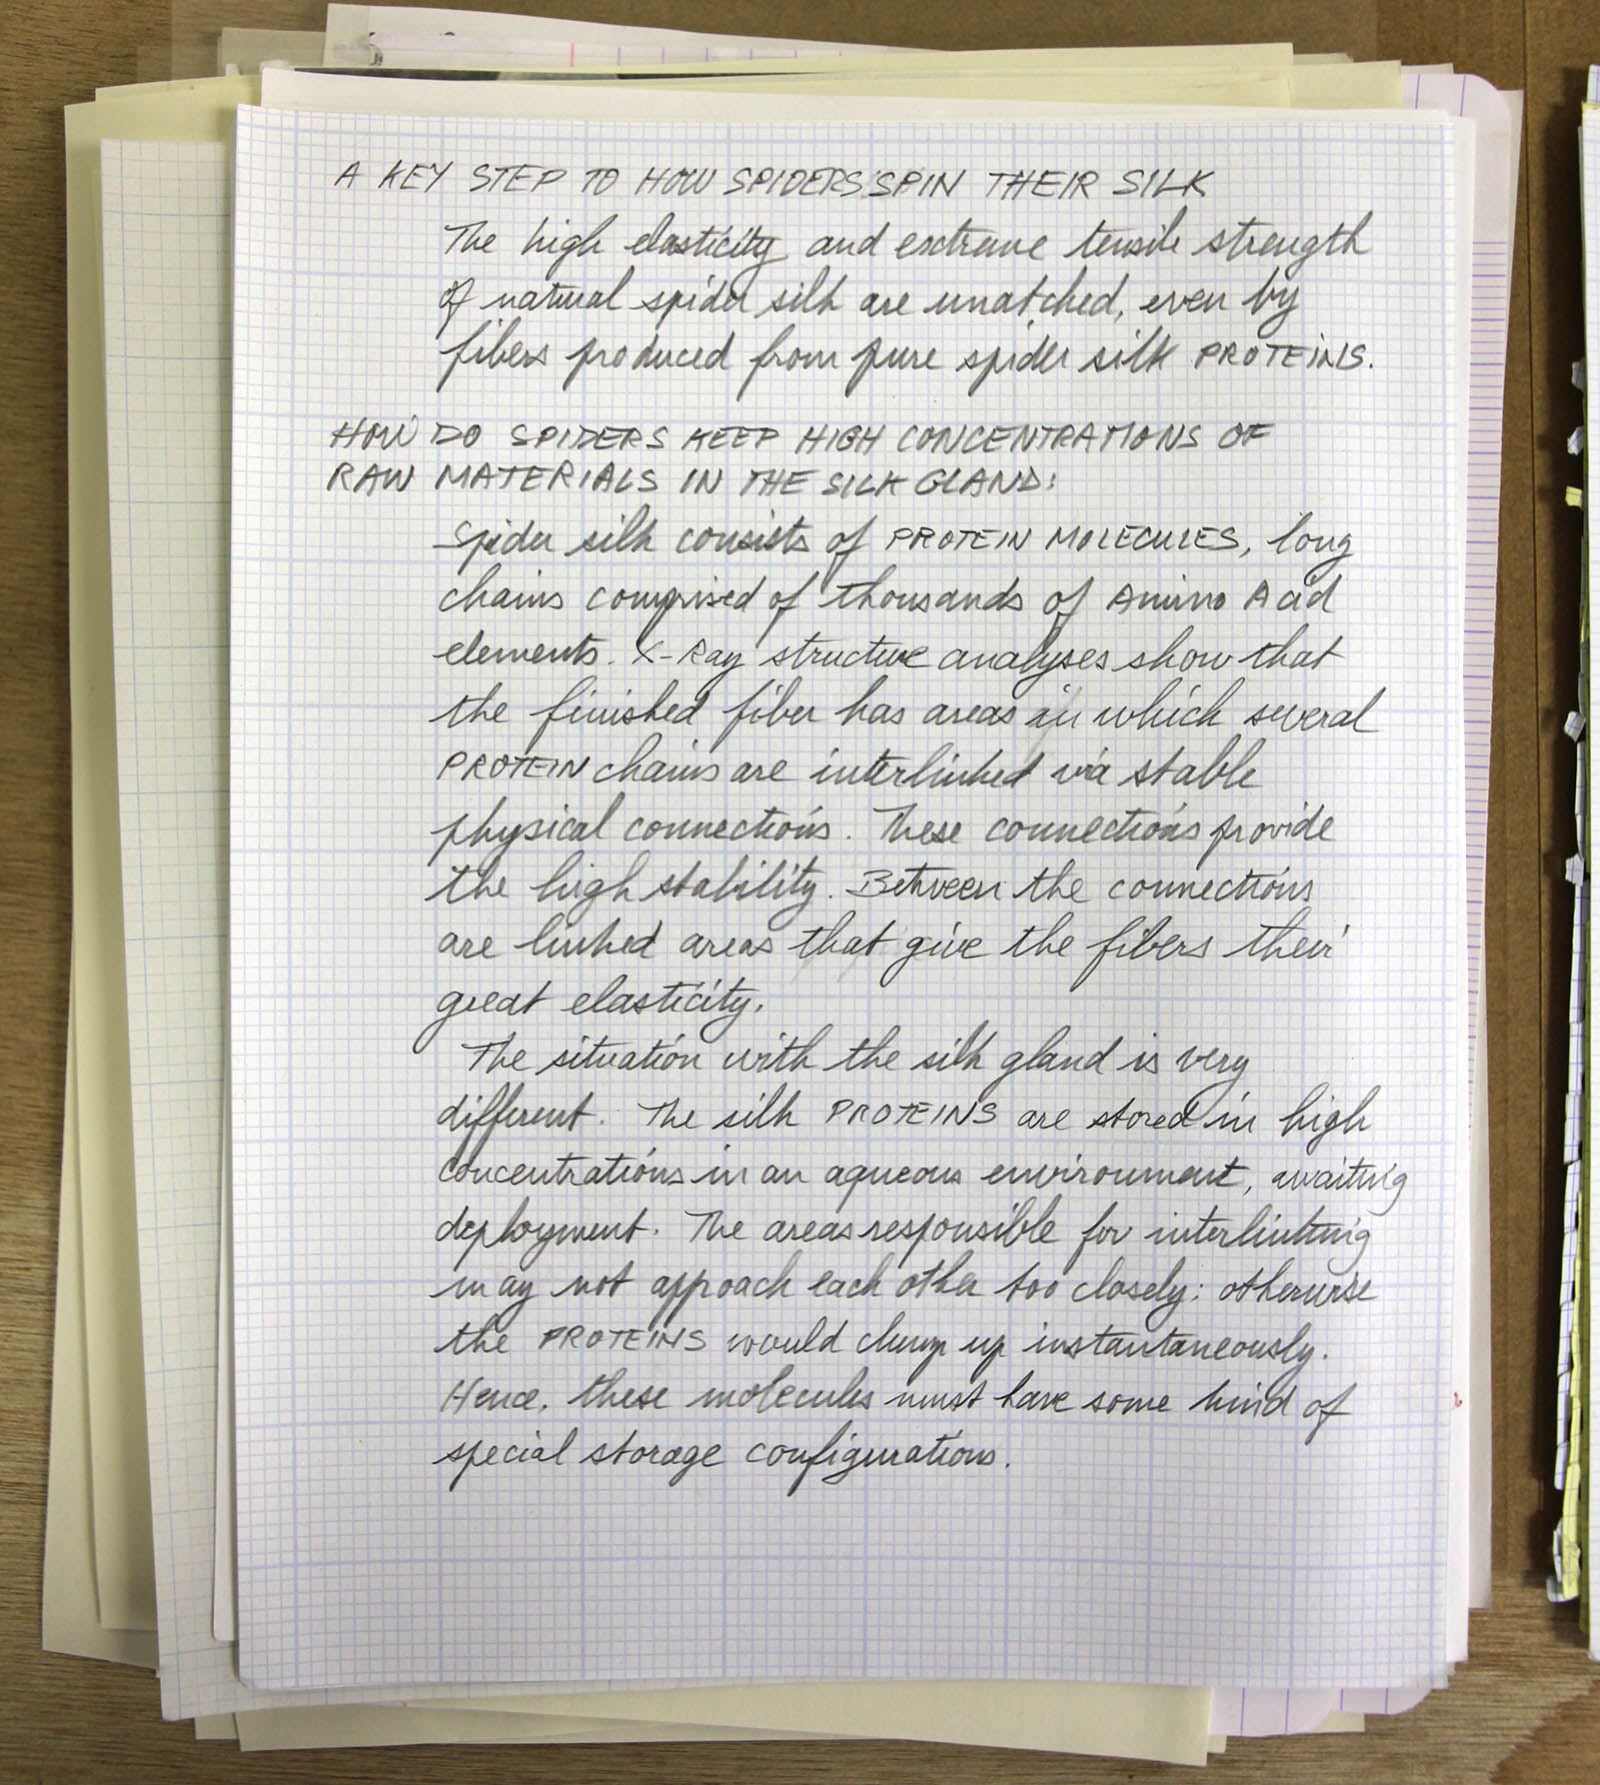 A KEY STEP TO HOW SPIDERS SPIN THEIR SILK
The high elasticity and extreme tensile strength
of natural spider silk are unatched, even by
fibers produced from pure spider silk PROTEINS.
HOW DO SPIDERS KEEP HIGH CONCENTRATIONS OF
RAW MATERIALS IN THE SILK GLAND:
Spider silk consists of PROTEIN MOLECULES, long
chains comprised of thousands of Amino Acid
elements. X-Ray structure analyses show that
the finished fiber has areas in which several
PROTEIN chains are interlinked via stable
physical connections. These connections provide
the high stability. Between the connections
are linked areas that give the fibers their
great elasticity.
The situation with the silk gland is very
different. The silk PROTEINS are stored in high
concentrations in an aqueous environment, awaiting
deployment. The areas responsible for interlinking
may not approach each other too closely; otherwise
the PROTEINS would clump up instantaneously.
Hence, these molecules must have some kind of
special storage configurations.